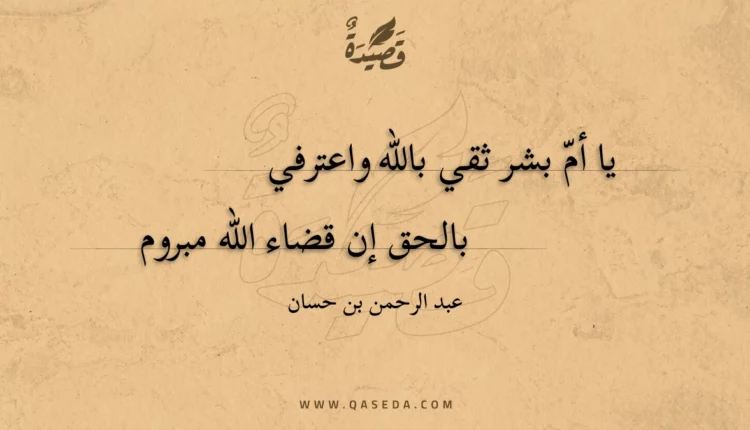 قَصِيْدَةٌ
يا أمّ بشر ثقي بالله واعترفي
بالحق إن قضاء الله مبروم
عبد الرحمن بن حسان
WWW.QASEDA.COM